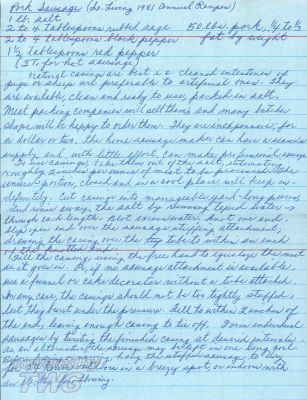 Pork Sausage (So. Living 1981 Annual Recipes)
1 lb. salt
2 to 4 tablespoons rubbed sage 50 lbs. pork, ¼ to ⅓
2 to 4 tablespoons black pepper fat by weight
1½ tablespoons red pepper
(3 T. for hot sausage)
Natural casings are best i.e. cleaned intestines of
pigs or sheep are preferable to artificial ones. They
are available, clean and ready to use, packed in salt.
Meat packing companies will sell them, and many butcher
shops will be happy to order them. They are inexpensive; for
a dollar or two, the home sausage maker can have a season's
supply, and with little effort can make professional sausage
To use casings, take them out of the salt, estimating
roughly 2 inches per ounce of meat to be processed. The
unused portion, closed and in a cool place, will keep in-
definitely. Cut casing into manageable yard-long pieces
and rinse away the salt by running tepid water
through each length. Blot excess water, knot one end.
Slip open end over the sausage stuffing attachment,
drawing the casing over the tube to within an inch
Fill the casing, using the free hand to equalize the meat
as it goes in. Or, if no sausage attachment is available,
use a funnel or cake decorator without a tube attached.
In any case, the casings should not be too tightly stuffed,
lest they burst under the pressure. Fill to within 2 inches of
the end, leaving enough casing to tie off. Form individual
sausages by twisting the finished casing at desired intervals.
As an alternative, the sausage may be left in one long coil.
hang the stuffed sausage to dry
in a breezy spot, or indoors with